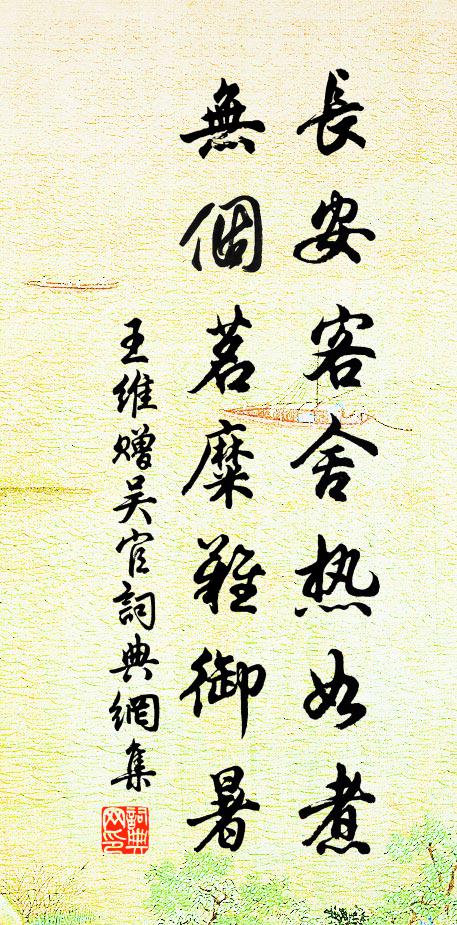 長安客舍热如煮
無個茗糜難御暑
王維贈吴官詞典網集
詞典網印